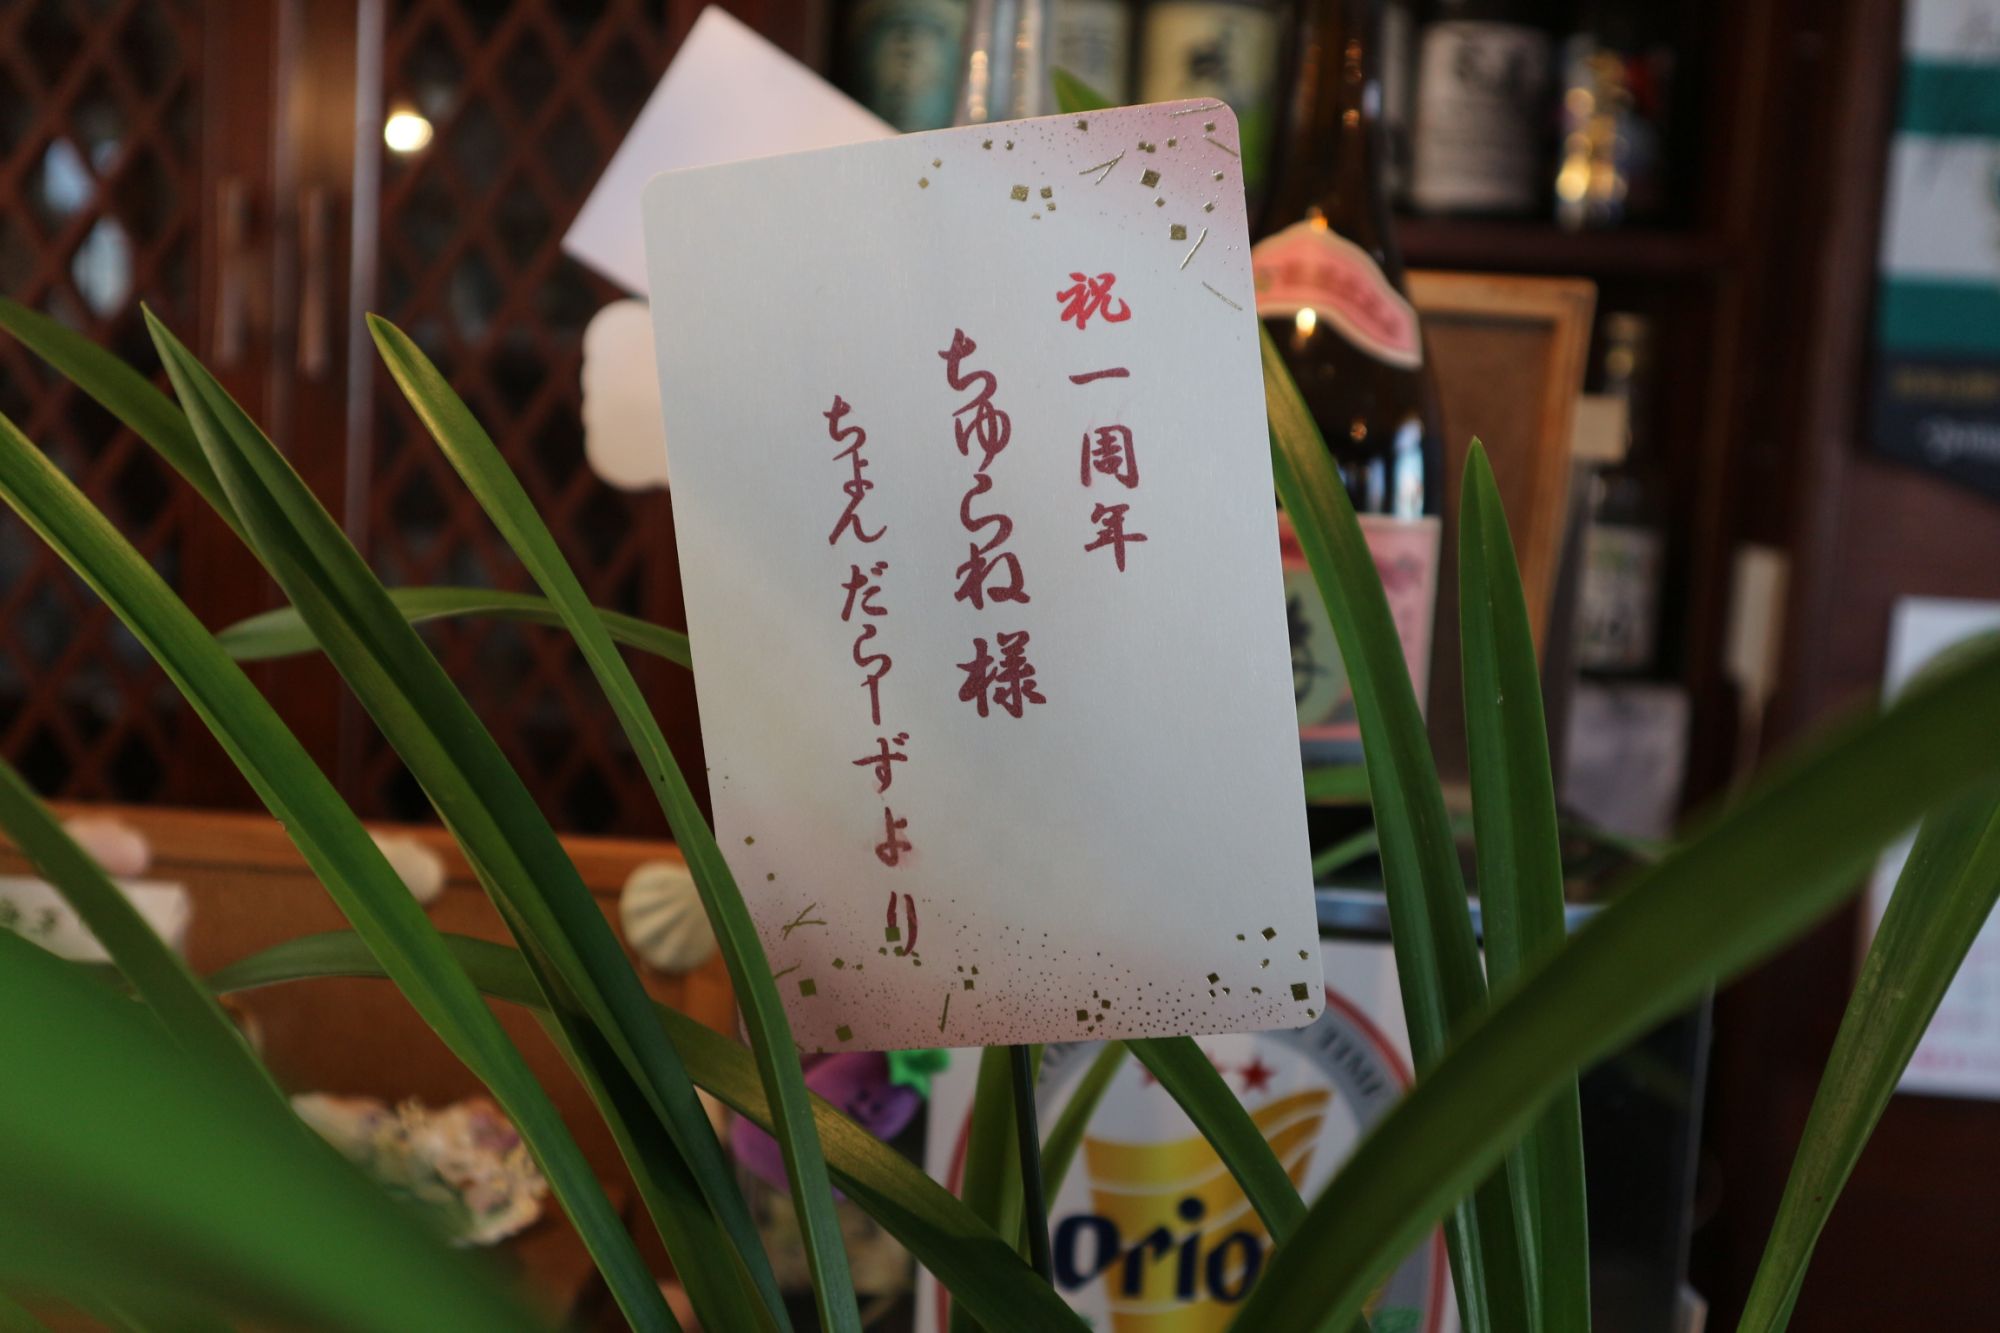 祝一周年
ちゅらね様
ちょんだらーずより
TIME
orio